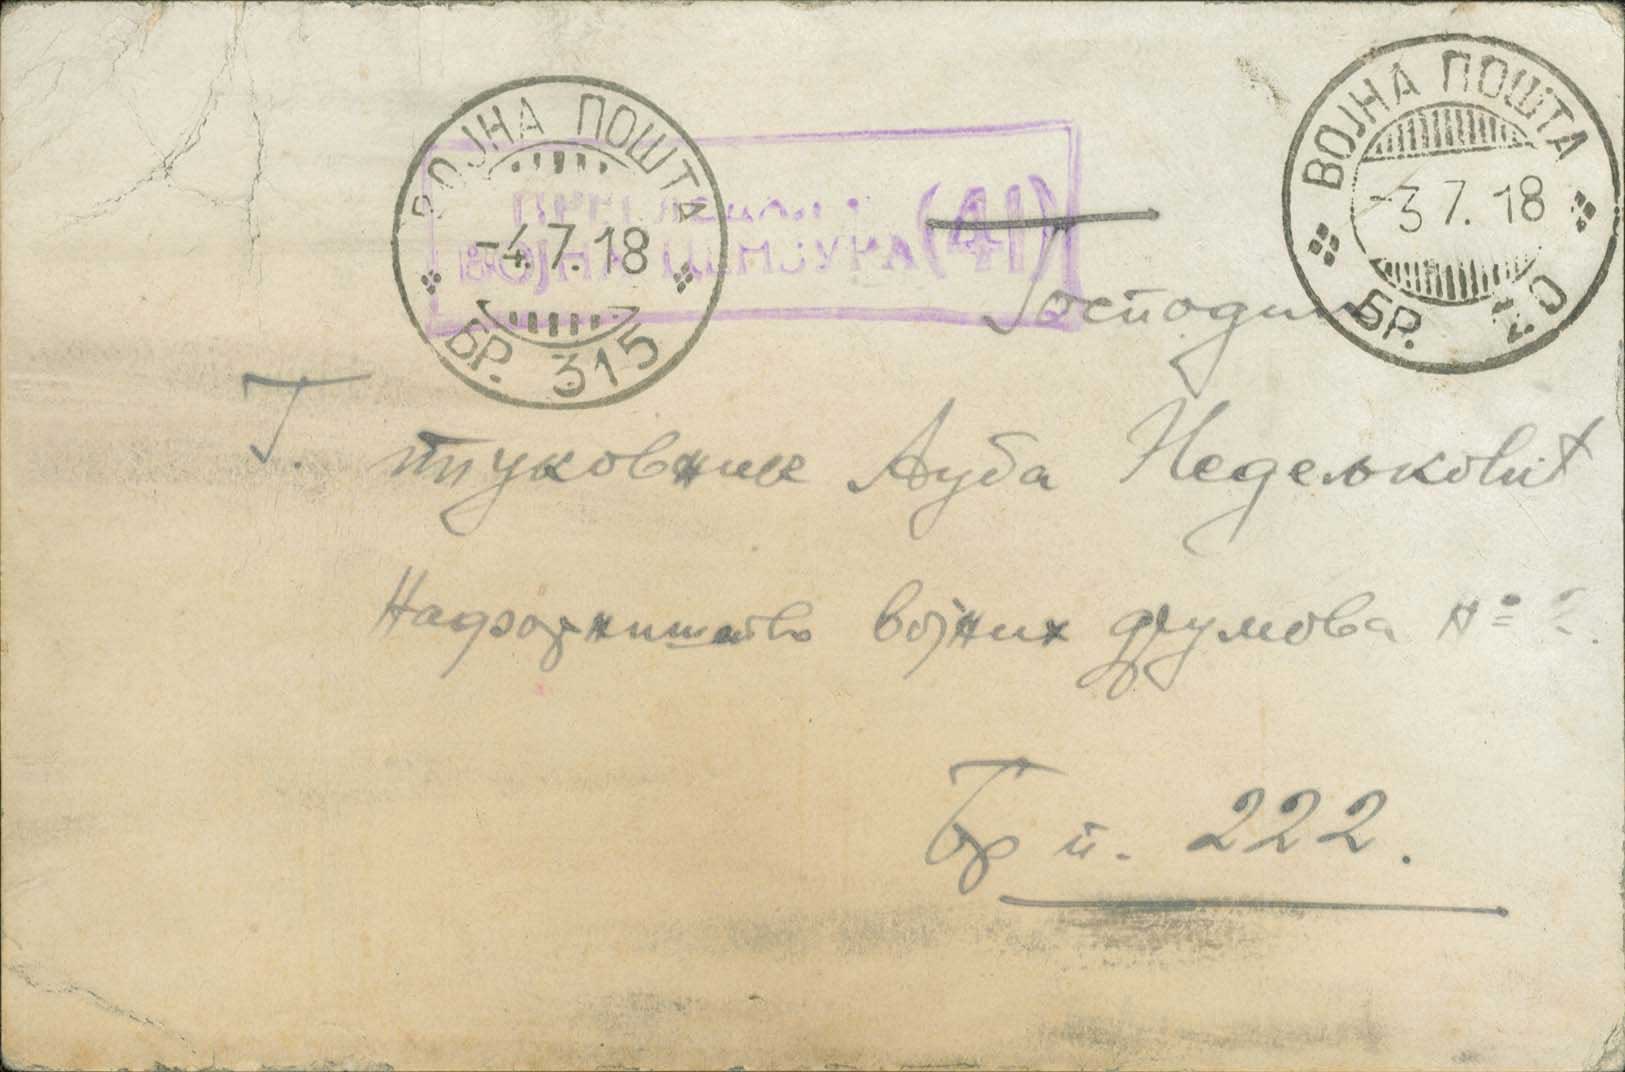 ВОЈНА ПОШТА
-4.7.18
БР. 315
ВОЈНА ЦЕНЗУРА (41)
ВОЈНА ПОШТА
-3 7.18
БР.
Господин
Г. пуковник Љуба Недељковић
војних друмова №
Бр п. 222.